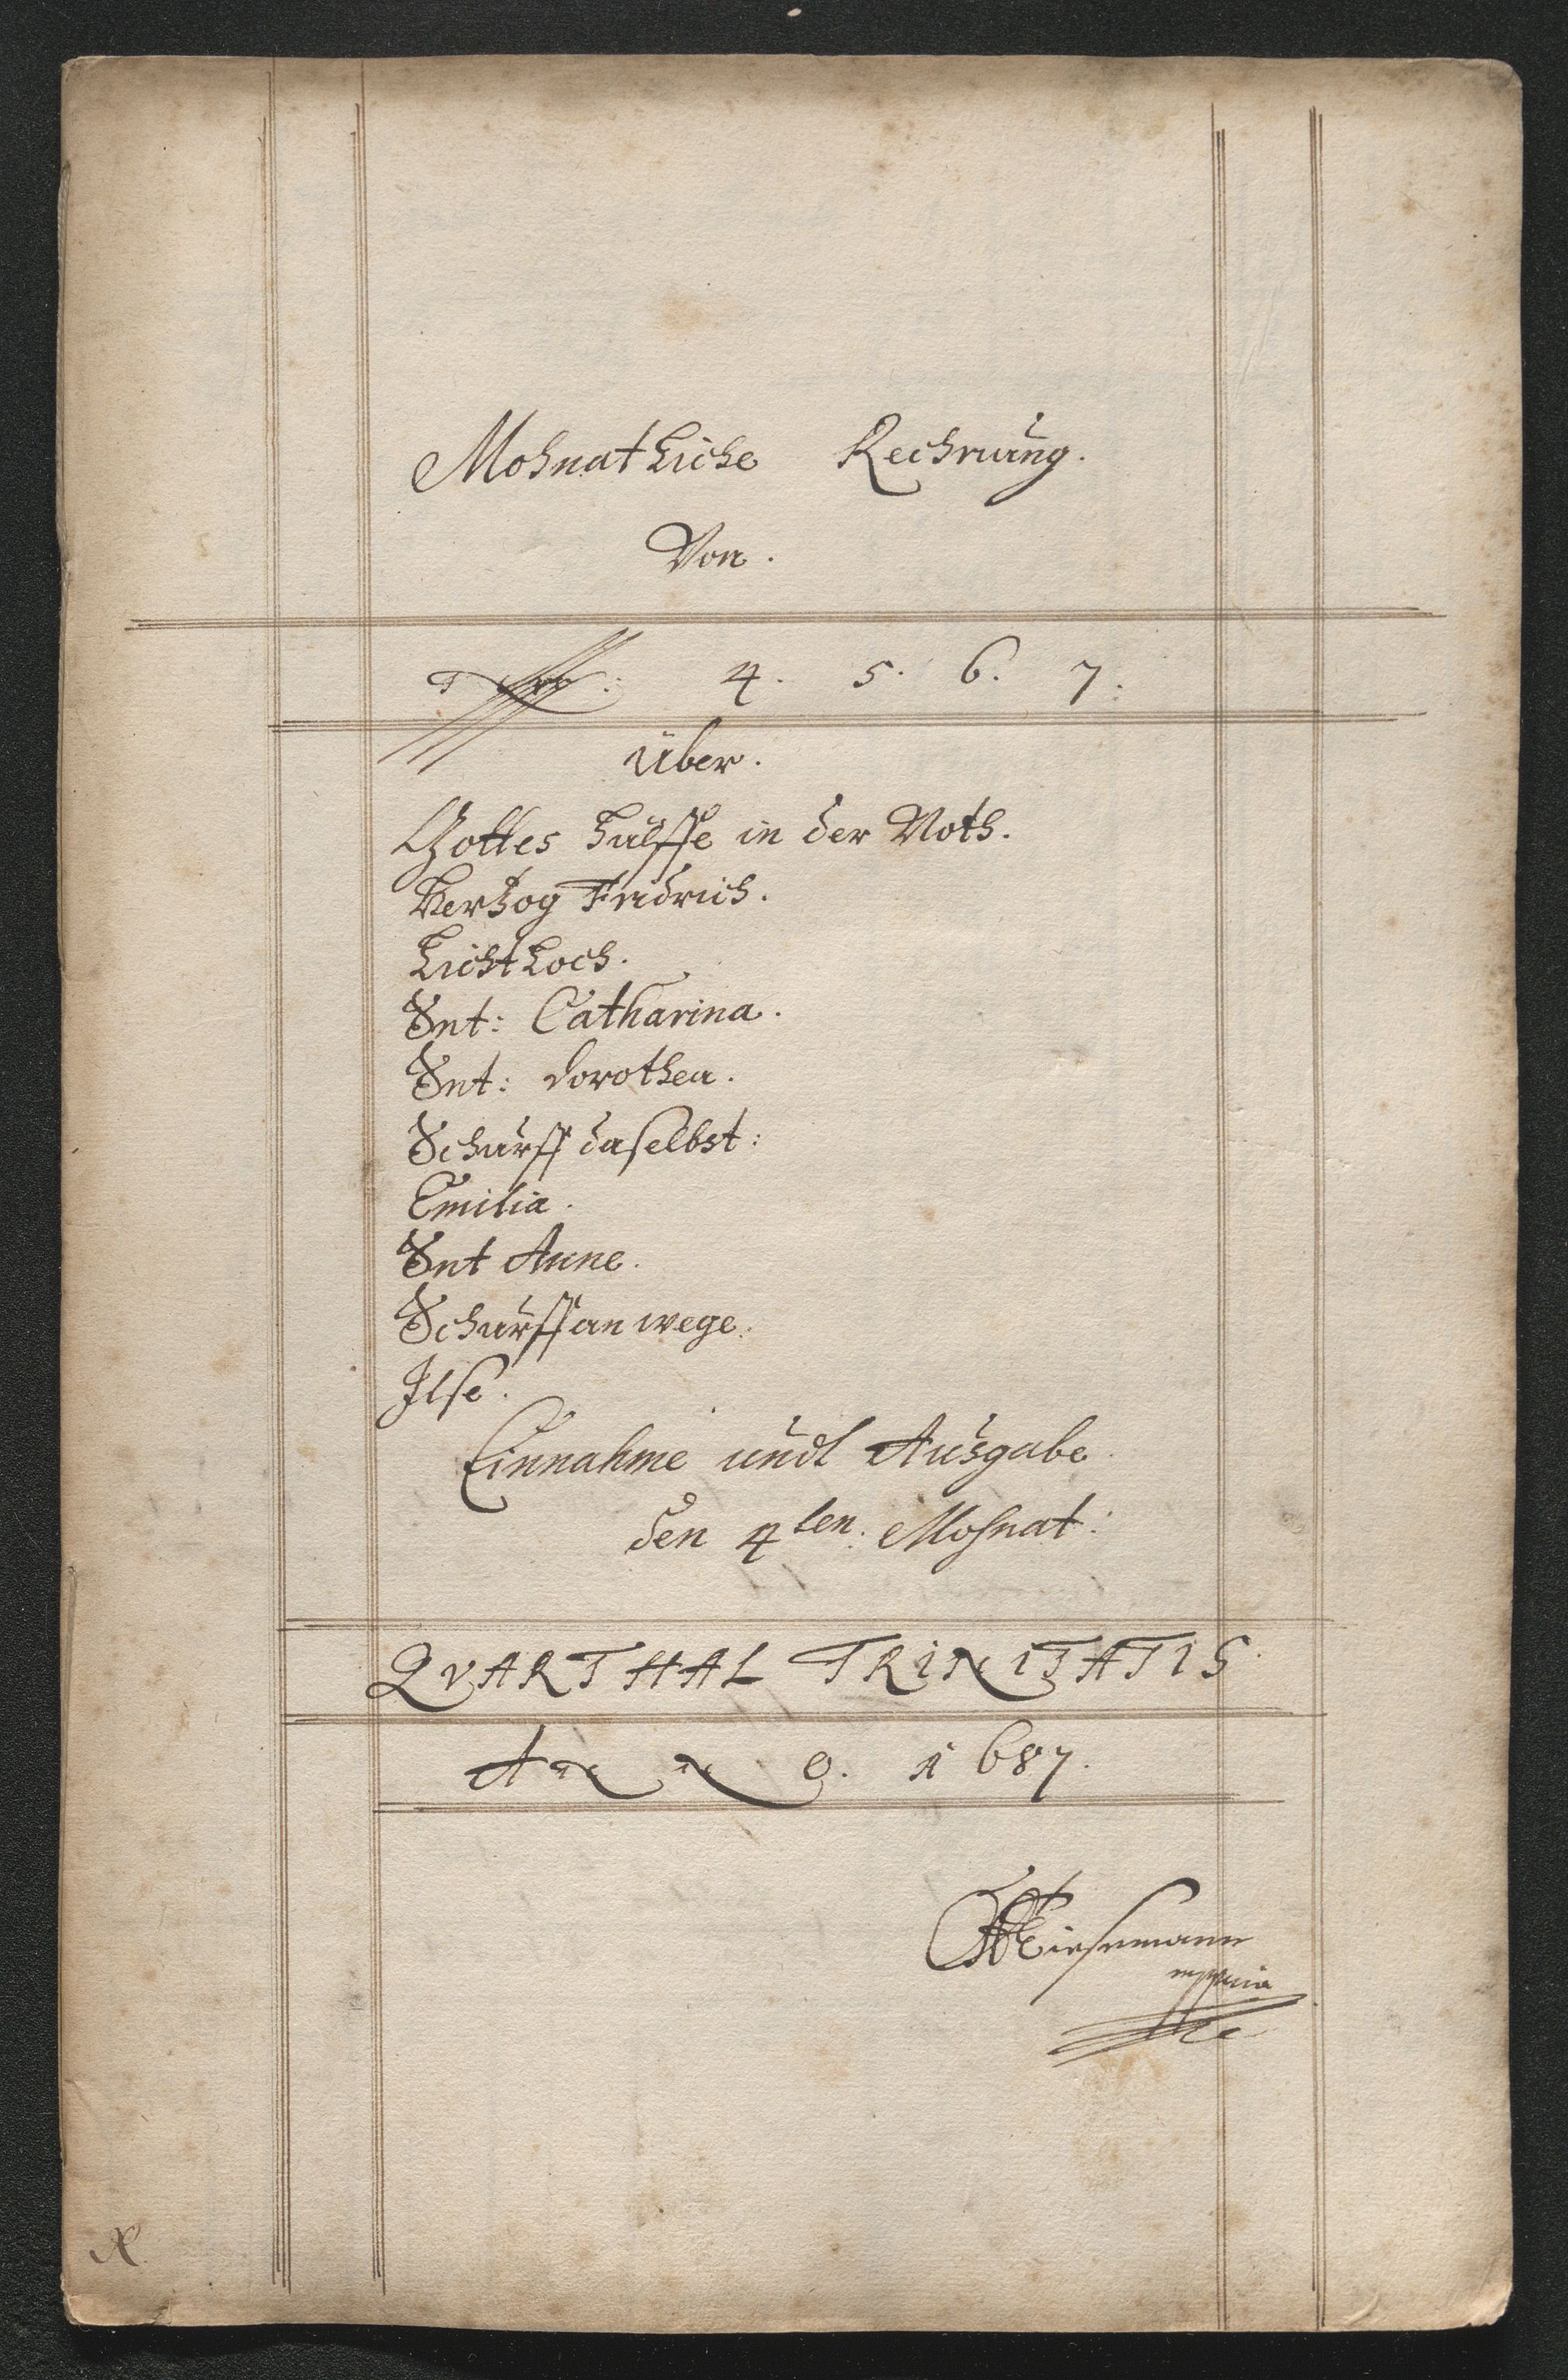 Mohnatliche Rechnung.
Von.
4. 5. 6. 7:
über.
Gottes hülffe in der Noth.
Hertzog Fridrich.
Lichtloch.
Snt: Catharina.
Snt: dorothea.
Schürff daselbst:
Emilia.
Snt Anne.
Schürff an wege.
Ilse.
Einnahme undt Ausgabe
den 4ten. Mohnat:
QVARTHAL TRINITATIS
Anno. 1687.
mppria